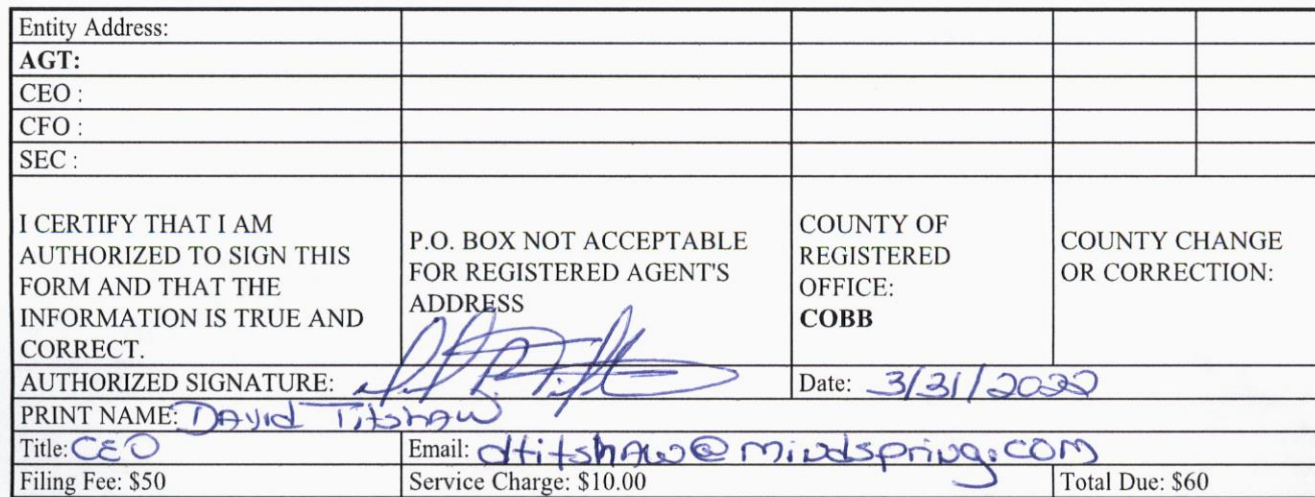 Entity Address:
AGT:
CEO :
CFO :
SEC :
I CERTIFY THAT I AM
AUTHORIZED TO SIGN THIS
FORM AND THAT THE
INFORMATION IS TRUE AND
CORRECT.
P.O. BOX NOT ACCEPTABLE
FOR REGISTERED AGENT'S
ADDRESS
COUNTY OF
REGISTERED
OFFICE:
COBB
COUNTY CHANGE
OR CORRECTION:
AUTHORIZED SIGNATURE: Date: 3/31/2022
PRINT NAME: DAvid TitshAw
Title: CEO Email: dtitshAw@mindspring.com
Filing Fee: $50 Service Charge: $10.00 Total Due: $60